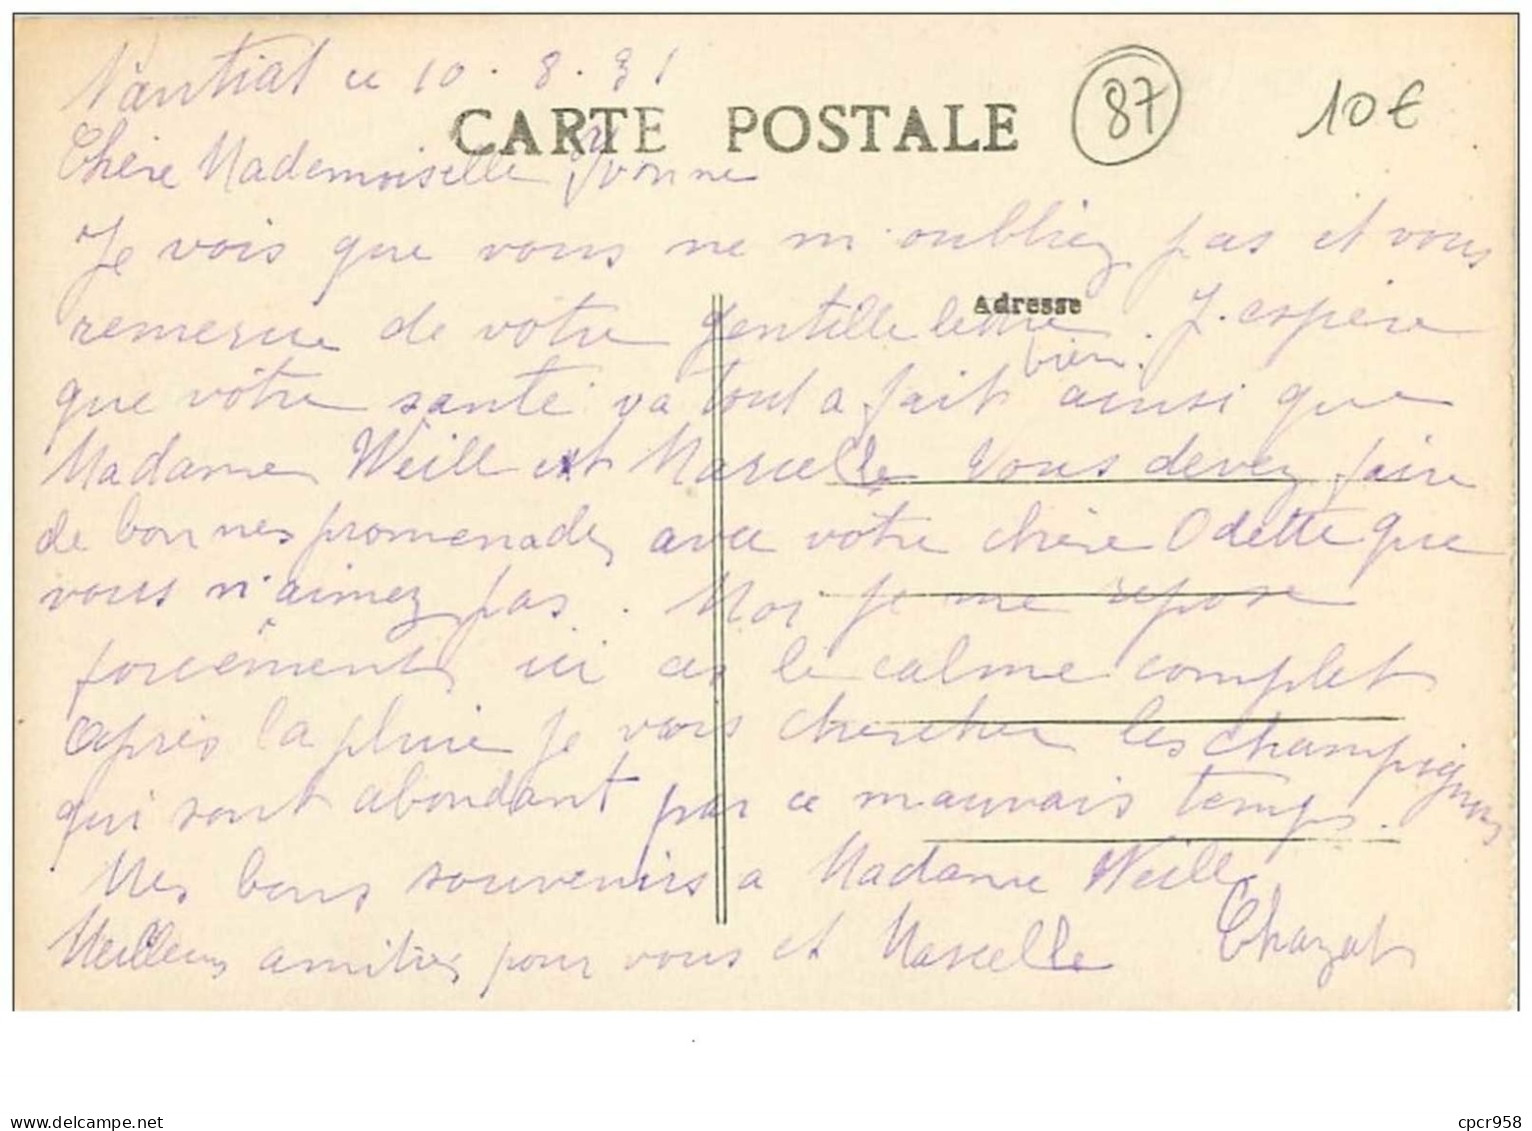 Nantiat ce 10.8.31
CARTE POSTALE
87
10€
Chère Mademoiselle Yvonne
Je vois que vous ne m'oubliez pas et vous
remercie de votre gentille lettre. J'espère
Adresse
que vôtre santé va tout a fait bien ainsi que
Madame Weill et Marcelle vous devez faire
de bonnes promenades avec vôtre chère Odette que
vous n'aimez pas. Moi je me repose
forcément ici c'es le calme complet
après la pluie je vais chercher les champignons
qui sont abondant par ce mauvais temps.
Mes bons souvenirs a Madame Weill
Meilleurs amitiés pour vous et Marcelle Chazat
cpcr958
delcampe.net